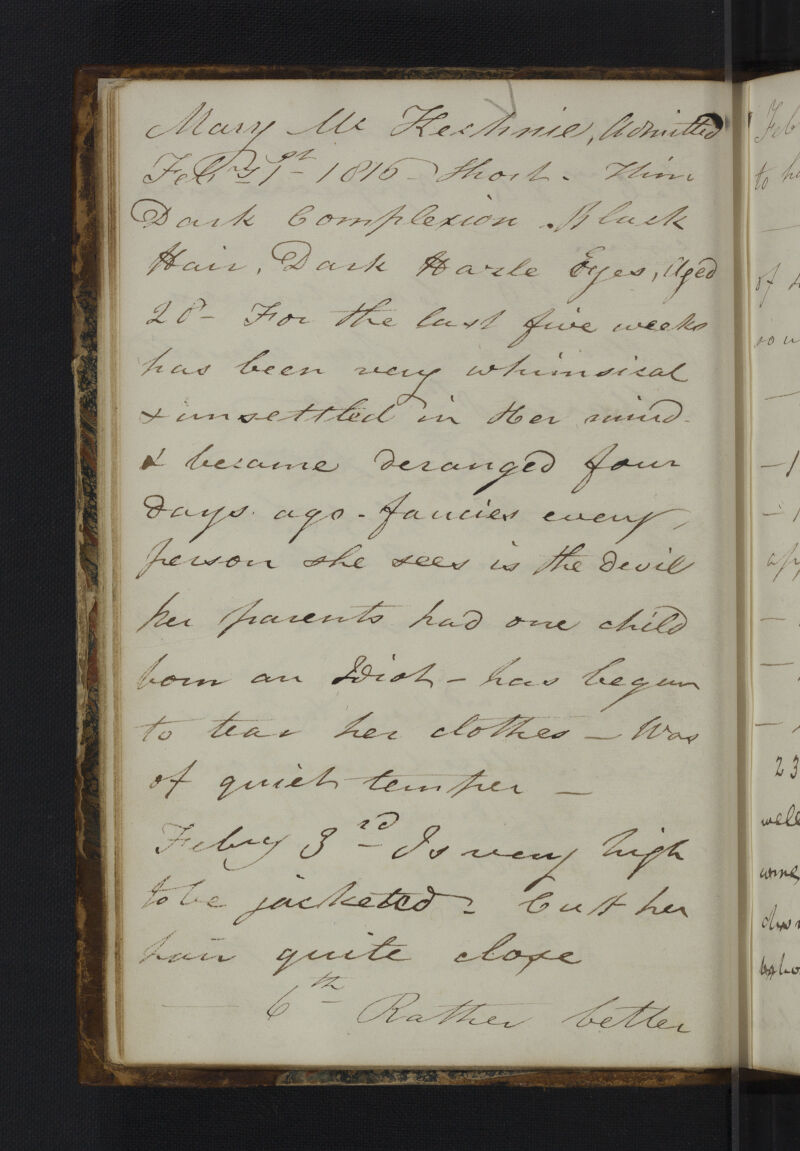 Mary Mc Kechnie, Admitted
Febry 1st 1816 - Short - Thin
Dark Complexion . Black
Hair, Dark Hazle Eyes, Aged
28 - For the last five weeks
has been very whimsical
& unsettled in Her mind.
& became deranged four
days ago - fancies every
person she sees is the devil
her parents had one child
born an Idiot - has begun
to tear her clothes - Was
of quiet temper -
Febry 3rd Is very high
to be jacketed - Cut her
hair quite close
6th Rather better
Feb
to
of
23
well